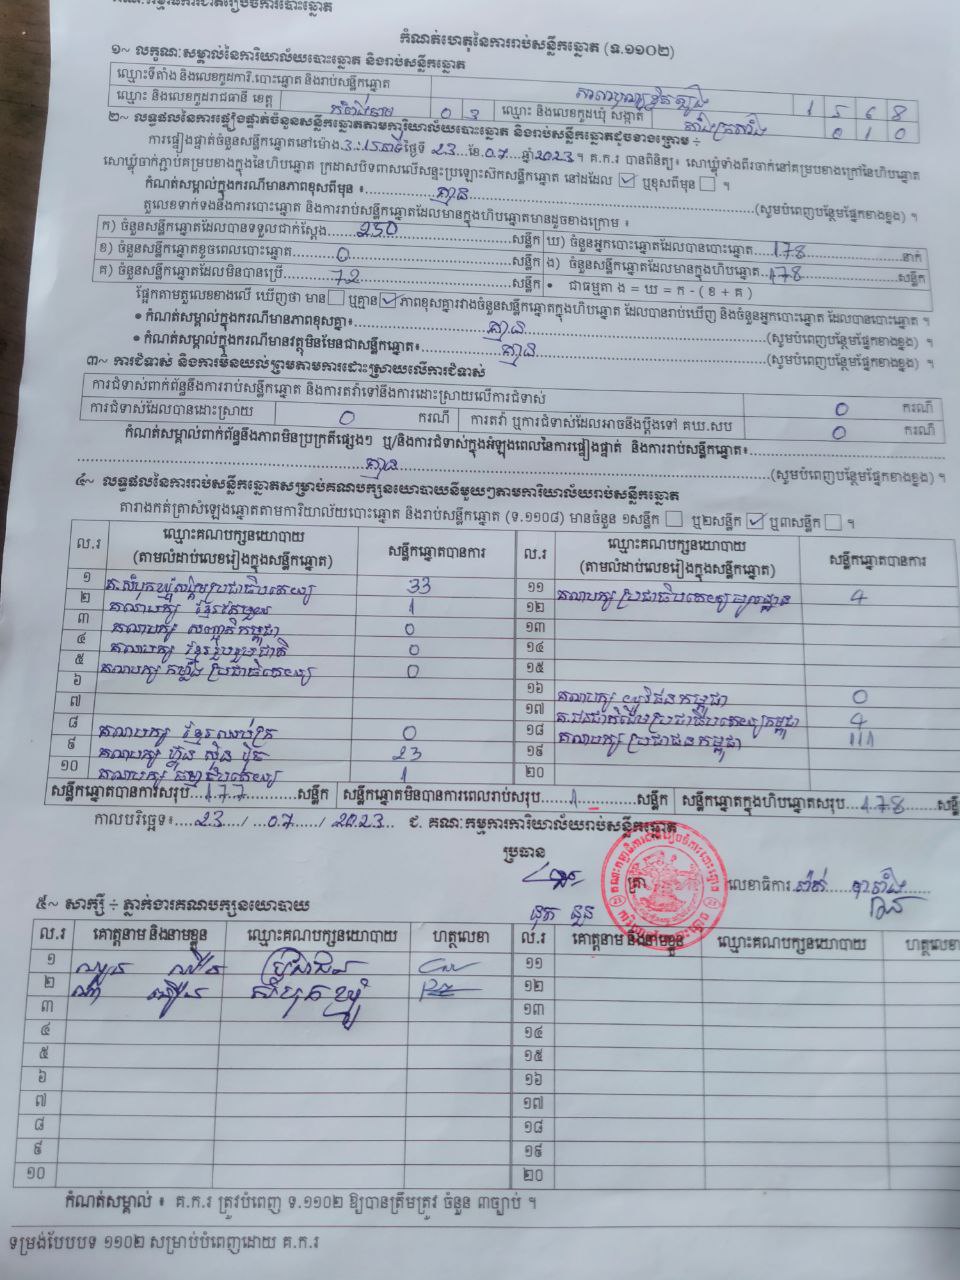 កំណត់ហេតុនៃការរាប់សន្លឹកឆ្នោត (ទ.១១០២)
១~ លក្ខណៈសម្គាល់នៃការិយាល័យបោះឆ្នោត និងរាប់សន្លឹកឆ្នោត
ឈ្មោះទីតាំង និងលេខកូដការិ.បោះឆ្នោត និងរាប់សន្លឹកឆ្នោត 1 5 6 8
ឈ្មោះ និងលេខកូដរាជធានី ខេត្ត កំពង់ចាម 0 3 ឈ្មោះ និងលេខកូដឃុំ សង្កាត់ 0 1 0
២~ លទ្ធផលនៃការផ្ទៀងផ្ទាត់ចំនួនសន្លឹកឆ្នោតតាមការិយាល័យបោះឆ្នោត និងរាប់សន្លឹកឆ្នោតដូចខាងក្រោម ÷
ការផ្ទៀងផ្ទាត់ចំនួនសន្លឹកឆ្នោតនៅម៉ោង 3:15នាទី ថ្ងៃទី 23 ខែ 07 ឆ្នាំ 2023។ គ.ក.រ បានពិនិត្យ៖ សោឃ្លុំទាំងពីរចាក់នៅគម្របខាងក្រៅនៃហិបឆ្នោត
សោឃ្លុំចាក់ភ្ជាប់គម្របខាងក្នុងនៃហិបឆ្នោត ក្រដាសបិទពាសលើសន្ទះប្រឡោះសិកសន្លឹកឆ្នោត នៅដដែល ☑ ឬខុសពីមុន ☐ ។
កំណត់សម្គាល់ក្នុងករណីមានភាពខុសពីមុន ៖ គ្មាន (សូមបំពេញបន្ថែមផ្នែកខាងខ្នង) ។
តួលេខទាក់ទងនឹងការបោះឆ្នោត និងការរាប់សន្លឹកឆ្នោតដែលមានក្នុងហិបឆ្នោតមានដូចខាងក្រោម ៖
ក) ចំនួនសន្លឹកឆ្នោតដែលបានទទួលជាក់ស្តែង 250 សន្លឹក ឃ) ចំនួនអ្នកបោះឆ្នោតដែលបានបោះឆ្នោត 178 នាក់
ខ) ចំនួនសន្លឹកឆ្នោតខូចពេលបោះឆ្នោត 0 សន្លឹក ង) ចំនួនសន្លឹកឆ្នោតដែលមានក្នុងហិបឆ្នោត 178 សន្លឹក
គ) ចំនួនសន្លឹកឆ្នោតដែលមិនបានប្រើ 72 សន្លឹក • ជាធម្មតា ង = ឃ = ក - ( ខ + គ )
ផ្អែកតាមតួលេខខាងលើ ឃើញថា មាន ☐ ឬគ្មាន ☑ ភាពខុសគ្នារវាងចំនួនសន្លឹកឆ្នោតក្នុងហិបឆ្នោត ដែលបានរាប់ឃើញ និងចំនួនអ្នកបោះឆ្នោត ដែលបានបោះឆ្នោត ។
• កំណត់សម្គាល់ក្នុងករណីមានភាពខុសគ្នា៖ គ្មាន (សូមបំពេញបន្ថែមផ្នែកខាងខ្នង) ។
• កំណត់សម្គាល់ក្នុងករណីមានវត្ថុមិនមែនជាសន្លឹកឆ្នោត៖ គ្មាន (សូមបំពេញបន្ថែមផ្នែកខាងខ្នង) ។
៣~ ការជំទាស់ និងការមិនយល់ព្រមតាមការដោះស្រាយលើការជំទាស់
ការជំទាស់ពាក់ព័ន្ធនឹងការរាប់សន្លឹកឆ្នោត និងការតវ៉ាទៅនឹងការដោះស្រាយលើការជំទាស់ 0 ករណី
ការជំទាស់ដែលបានដោះស្រាយ 0 ករណី ការតវ៉ា ឬការជំទាស់ដែលអាចនឹងប្តឹងទៅ គឃ.សប 0 ករណី
កំណត់សម្គាល់ពាក់ព័ន្ធនឹងភាពមិនប្រក្រតីផ្សេងៗ ឬ/និងការជំទាស់ក្នុងអំឡុងពេលនៃការផ្ទៀងផ្ទាត់ និងការរាប់សន្លឹកឆ្នោត៖
គ្មាន (សូមបំពេញបន្ថែមផ្នែកខាងខ្នង) ។
៤~ លទ្ធផលនៃការរាប់សន្លឹកឆ្នោតសម្រាប់គណបក្សនយោបាយនីមួយៗតាមការិយាល័យរាប់សន្លឹកឆ្នោត
តារាងកត់ត្រាសំឡេងឆ្នោតតាមការិយាល័យបោះឆ្នោត និងរាប់សន្លឹកឆ្នោត (ទ.១១០៨) មានចំនួន ១សន្លឹក ☐ ឬ២សន្លឹក ☑ ឬ៣សន្លឹក ☐ ។
ល.រ ឈ្មោះគណបក្សនយោបាយ (តាមលំដាប់លេខរៀងក្នុងសន្លឹកឆ្នោត) សន្លឹកឆ្នោតបានការ ល.រ ឈ្មោះគណបក្សនយោបាយ (តាមលំដាប់លេខរៀងក្នុងសន្លឹកឆ្នោត) សន្លឹកឆ្នោតបានការ
១ គ.សំបុកឃ្មុំសង្គមប្រជាធិបតេយ្យ 33 ១១ គណបក្សប្រជាធិបតេយ្យមូលដ្ឋាន 4
២ គណបក្ស ខ្មែរតែមួយ 1 ១២
៣ គណបក្ស សញ្ជាតិកម្ពុជា 0 ១៣
៤ គណបក្ស ខ្មែររួបរួមជាតិ 0 ១៤
៥ គណបក្ស កម្លាំងប្រជាធិបតេយ្យ 0 ១៥
៦ ១៦ គណបក្ស យុវជនកម្ពុជា 0
៧ ១៧ 4
៨ គណបក្ស ខ្មែរឈប់ក្រ 0 ១៨ គណបក្សប្រជាជនកម្ពុជា 111
៩ គណបក្ស ហ្វ៊ុនស៊ិនប៉ិច 23 ១៩
១០ គណបក្ស ធម្មាធិបតេយ្យ 1 ២០
សន្លឹកឆ្នោតបានការសរុប 177 សន្លឹក សន្លឹកឆ្នោតមិនបានការពេលរាប់សរុប 1 សន្លឹក សន្លឹកឆ្នោតក្នុងហិបឆ្នោតសរុប 178
កាលបរិច្ឆេទ៖ 23 / 07 / 2023 ជ. គណៈកម្មការការិយាល័យរាប់សន្លឹកឆ្នោត
ប្រធាន
ត្រា លេខាធិការ
៥~ សាក្សី ÷ ភ្នាក់ងារគណបក្សនយោបាយ
ល.រ គោត្តនាម និងនាមខ្លួន ឈ្មោះគណបក្សនយោបាយ ហត្ថលេខា ល.រ គោត្តនាម និងនាមខ្លួន ឈ្មោះគណបក្សនយោបាយ ហត្ថលេខា
១ ប្រជាជន ១១
២ សំបុកឃ្មុំ ១២
៣ ១៣
៤ ១៤
៥ ១៥
៦ ១៦
៧ ១៧
៨ ១៨
៩ ១៩
១០ ២០
កំណត់សម្គាល់ ៖ គ.ក.រ ត្រូវបំពេញ ទ.១១០២ ឱ្យបានត្រឹមត្រូវ ចំនួន ៣ច្បាប់ ។
ទម្រង់បែបបទ ១១០២ សម្រាប់បំពេញដោយ គ.ក.រ